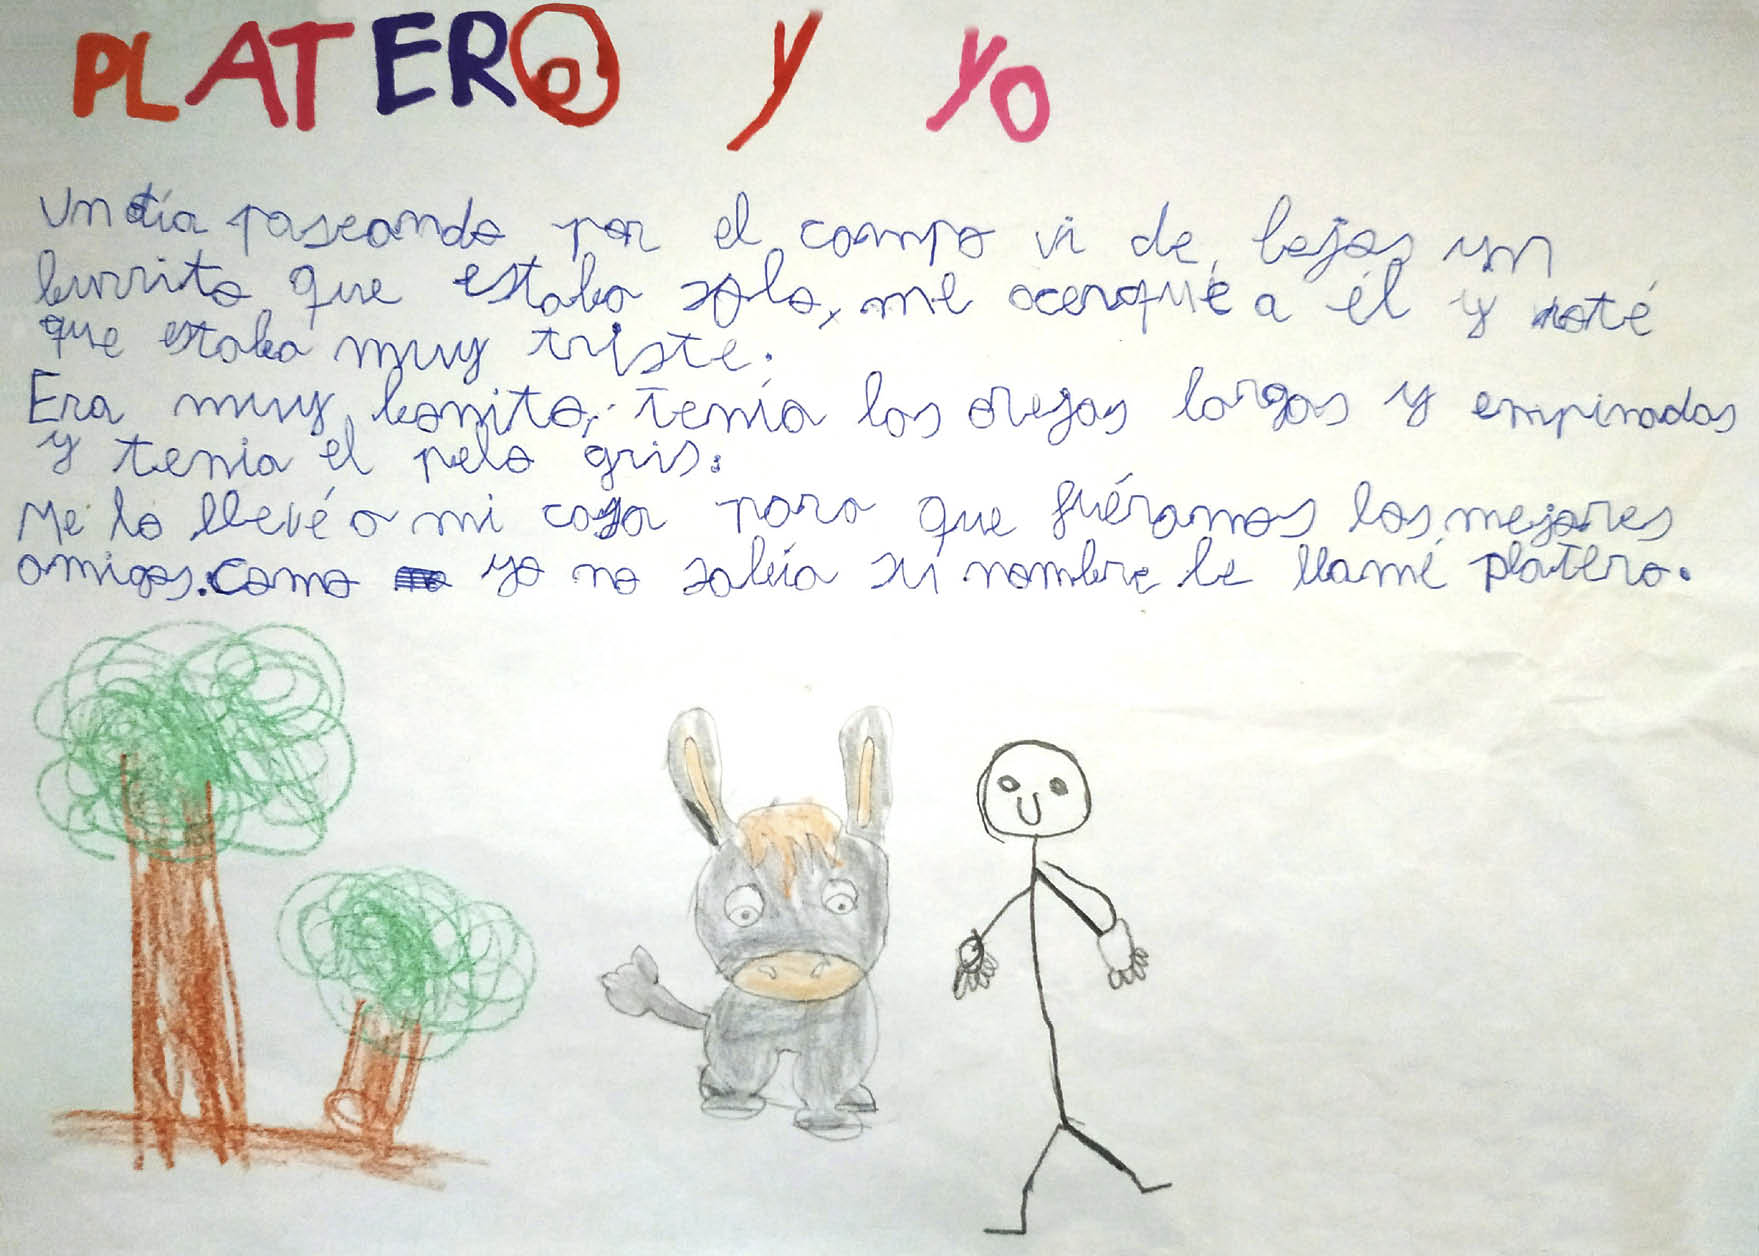 PLATERO y yo
Un día paseando por el campo vi de lejos un
burrito que estaba solo, me acerqué a él y noté
que estaba muy triste.
Era muy bonito, tenía las orejas largas y empinadas
y tenia el pelo gris.
Me lo llevé a mi casa para que fuéramos los mejores
amigos. Como yo no sabía su nombre le llamé platero.